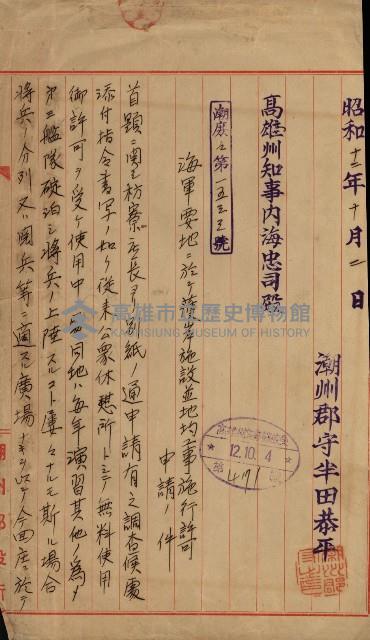 昭和十二年十月二日
潮州郡守半田恭平
高雄州知事内海忠司殿
潮庶第一五五三號
海軍要地ニ於ケル護岸施設並地均工事施行許可
申請ノ件
首題ニ関シ枋寮庄長ヨリ別紙ノ通申請有之調査候處
添付指令書写ノ如ク従来公衆休憩所トシテ無料使用
御許可ヲ受ケ使用中ノ處同地ハ毎年演習其他ノ為メ
第三艦隊碇泊シ将兵ノ上陸スルコト屡々ナルモ斯ル場合
将兵ノ分列又ハ閲兵等ニ適スル廣場ナキヲ以テ今回庄ニ於テ
12.10.4
第471號
高雄市立歷史博物館
KAOHSIUNG MUSEUM OF HISTORY
潮州郡役所